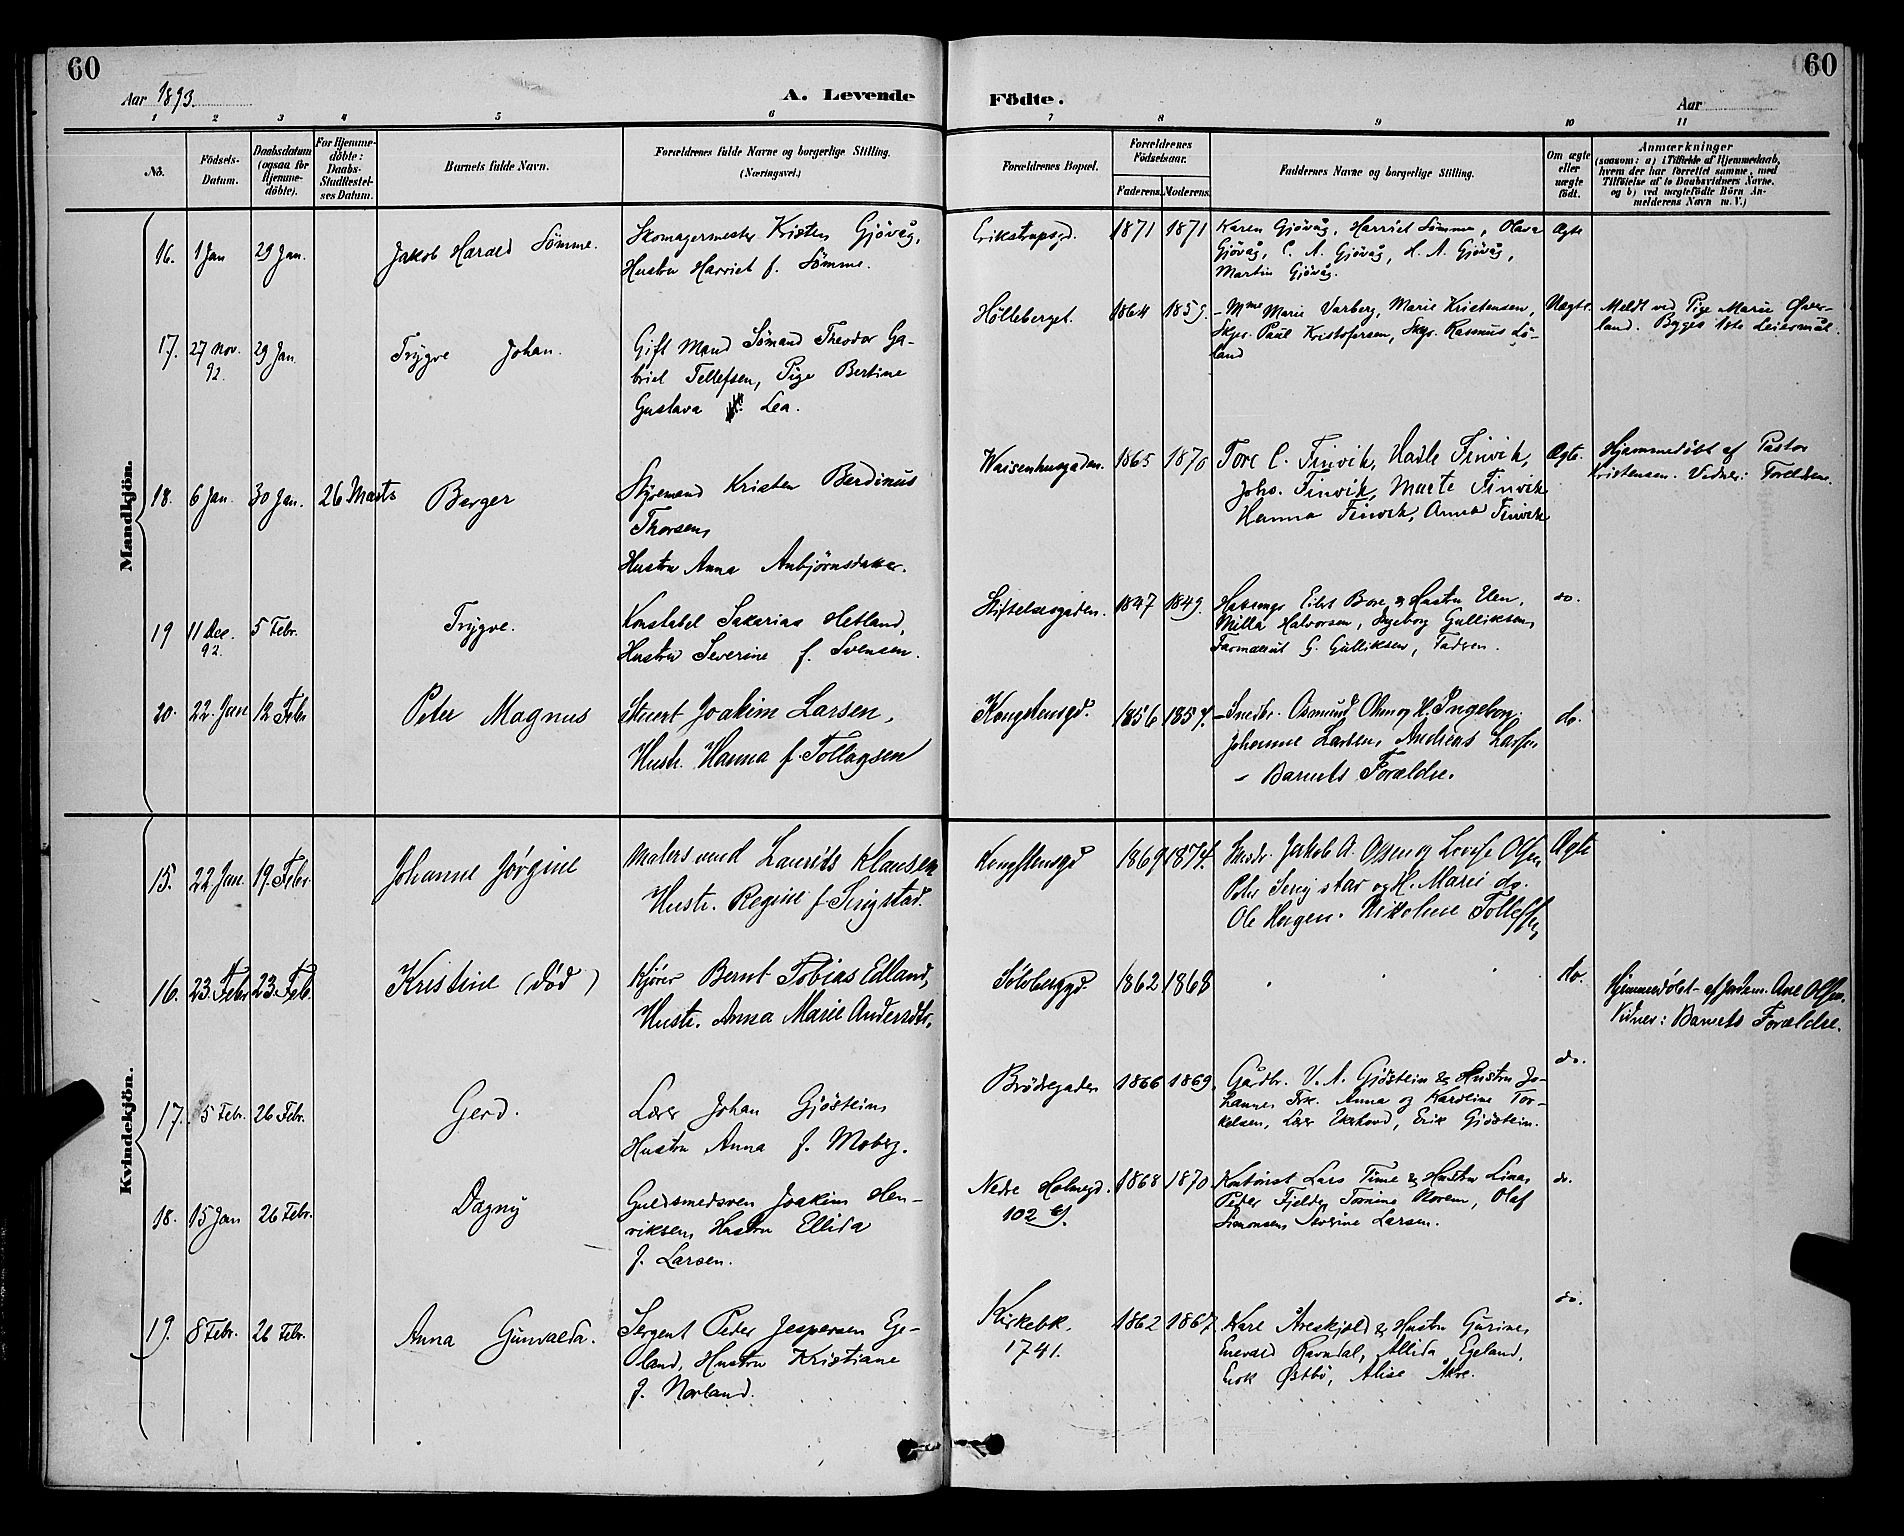 60
60
Aar 1893.
A. Levende
Födte.
Aar
1 2 3 4 5 6 7 8 9 10 11
No.
Födsels-
Datum.
Daabsdatum
(ogsaa for
Hjemme-
döbte).
For Hjemme-
döbte:
Daabs-
Stadfæstel-
ses Datum.
Barnets fulde Navn.
Forældrenes fulde Navne og borgerlige Stilling.
(Næringsvei.)
Forældrenes Bopæl.
Forældrenes
Födselsaar.
Faderens. Moderens.
Faddernes Navne og borgerlige Stilling.
Om ægte
eller
uægte
født.
Anmærkninger
(saasom: a) i Tilfælde af Hjemmedaab,
hvem der har forrettet samme, med
Tilföielse af to Daabsvidners Navne,
og b) ved uægtefödte Börn An-
melderens Navn m. V.)
Mandkjön.
16. 1 Jan 29 Jan. Jakob Harald Sömme.
Skomagermester Kristen Gjövåg,
Hustru Harriet f. Sömme.
Erikstrupsgd. 1871 1871
Karen Gjövåg, Harriet Sömme, Olava
Gjövåg, C. A. Gjövåg, H. A. Gjövåg,
Martin Gjövåg.
Ægte
17. 27 Nov. 92. 29 Jan. Trygve Johan.
Gift Mand Sömand Theodor Ga-
briel Tellefsen, Pige Bertine
Gustava Lea.
Hölleberget. 1864 1859.
Mme Marie Varberg, Marie Kristensen,
Skpr. Paul Kristofersen, Skpr. Rasmus Lö-
land
Uægte.
Meldt ved Pige Marie Øver-
land. Begges 1ste Leiermål.
18. 6 Jan. 30 Jan. 26 Marts Berger
Styrmand Kristen Berdinus
Thorsen,
Hustru Anna Anbjörnsdatter.
Waisenhusgaden. 1865 1870
Tore C. Finvik, Hadle Finvik,
Johs. Finvik, Marte Finvik
Hanna Finvik, Anna Finvik
Ægte.
Hjemmedöbt af Pastor
Kristensen. Vidner: Forældrene.
19 11 Dec. 92. 5 Febr. Trygve.
Konstabel Sakarias Hetland,
Hustru Severine f. Svensen.
Stiftelsesgaden. 1847 1849.
Eilert Bore & Hustru Elen,
Milla Halvorsen, Ingeborg Gulliksen,
G. Gulliksen, Faderen.
do.
20. 22. Jan 12 Febr Peter Magnus
Stuert Joakim Larsen,
Hustr. Hanna f. Tollagsen
Kongstensgd. 1856 1857.
Snedkr. Osmund Olsen og H. Ingebor.
Johanne Larsen, Andreas Larsen
- Barnets Forældre.
do.
Kvindekjön.
15. 22 Jan. 19. Febr. Johanne Jörgine
Malersvend Laurits Klausen
Hustr. Regine f. Singstad.
Kongstensgd 1869 1874.
Snedr. Jakob A. Olsen og Lovise Olsen
Peter Singstad og H. Marie do.
Ole Haugen. Nikoline Tollefsen
Ægte
16. 23. Febr 23. Feb. Kristine (död)
Kjörer Bernt Tobias Edland,
Hustr. Anna Marie Andersdtr.
Sölvberggd 1862 1868
do.
Hjemmedöbt af Jordem. Ane Olsen.
Vidner: Barnets Forældre.
17. 5 Febr. 26 Febr. Gerd.
Lærer Johan Gjöstein
Hustru Anna f. Moberg.
Brödregaden 1866 1869.
Gårdbr. V. A. Gjöstein & Hustru Jo-
hanne, Frk. Anna og Karoline Tor-
kelsen, Lærer Ekrhovd, Erik Gjöstein.
do.
18. 15 Jan 26 Febr. Dagny
Guldsmedsven Joakim Hen-
riksen, Hustru Ellida
f. Larsen.
Nedre Holmegd.
102
1868 1870.
Kontorist Lars Time & Hustru Linaa
Peder Fjelde, Tomine Norem, Olaf
Simonsen, Severine Larsen.
do.
19. 8 Febr. 26 Febr. Anna Gunvalda.
Sergent Peder Jespersen Ege-
land, Hustru Kristiane
f. Norland.
Kirkebk.
1741.
1862 1867
Karl Areskjold & Hustru Gurine,
Enevald Ravndal, Allida Egeland,
Erik Østbö, Alise Åkre.
do.